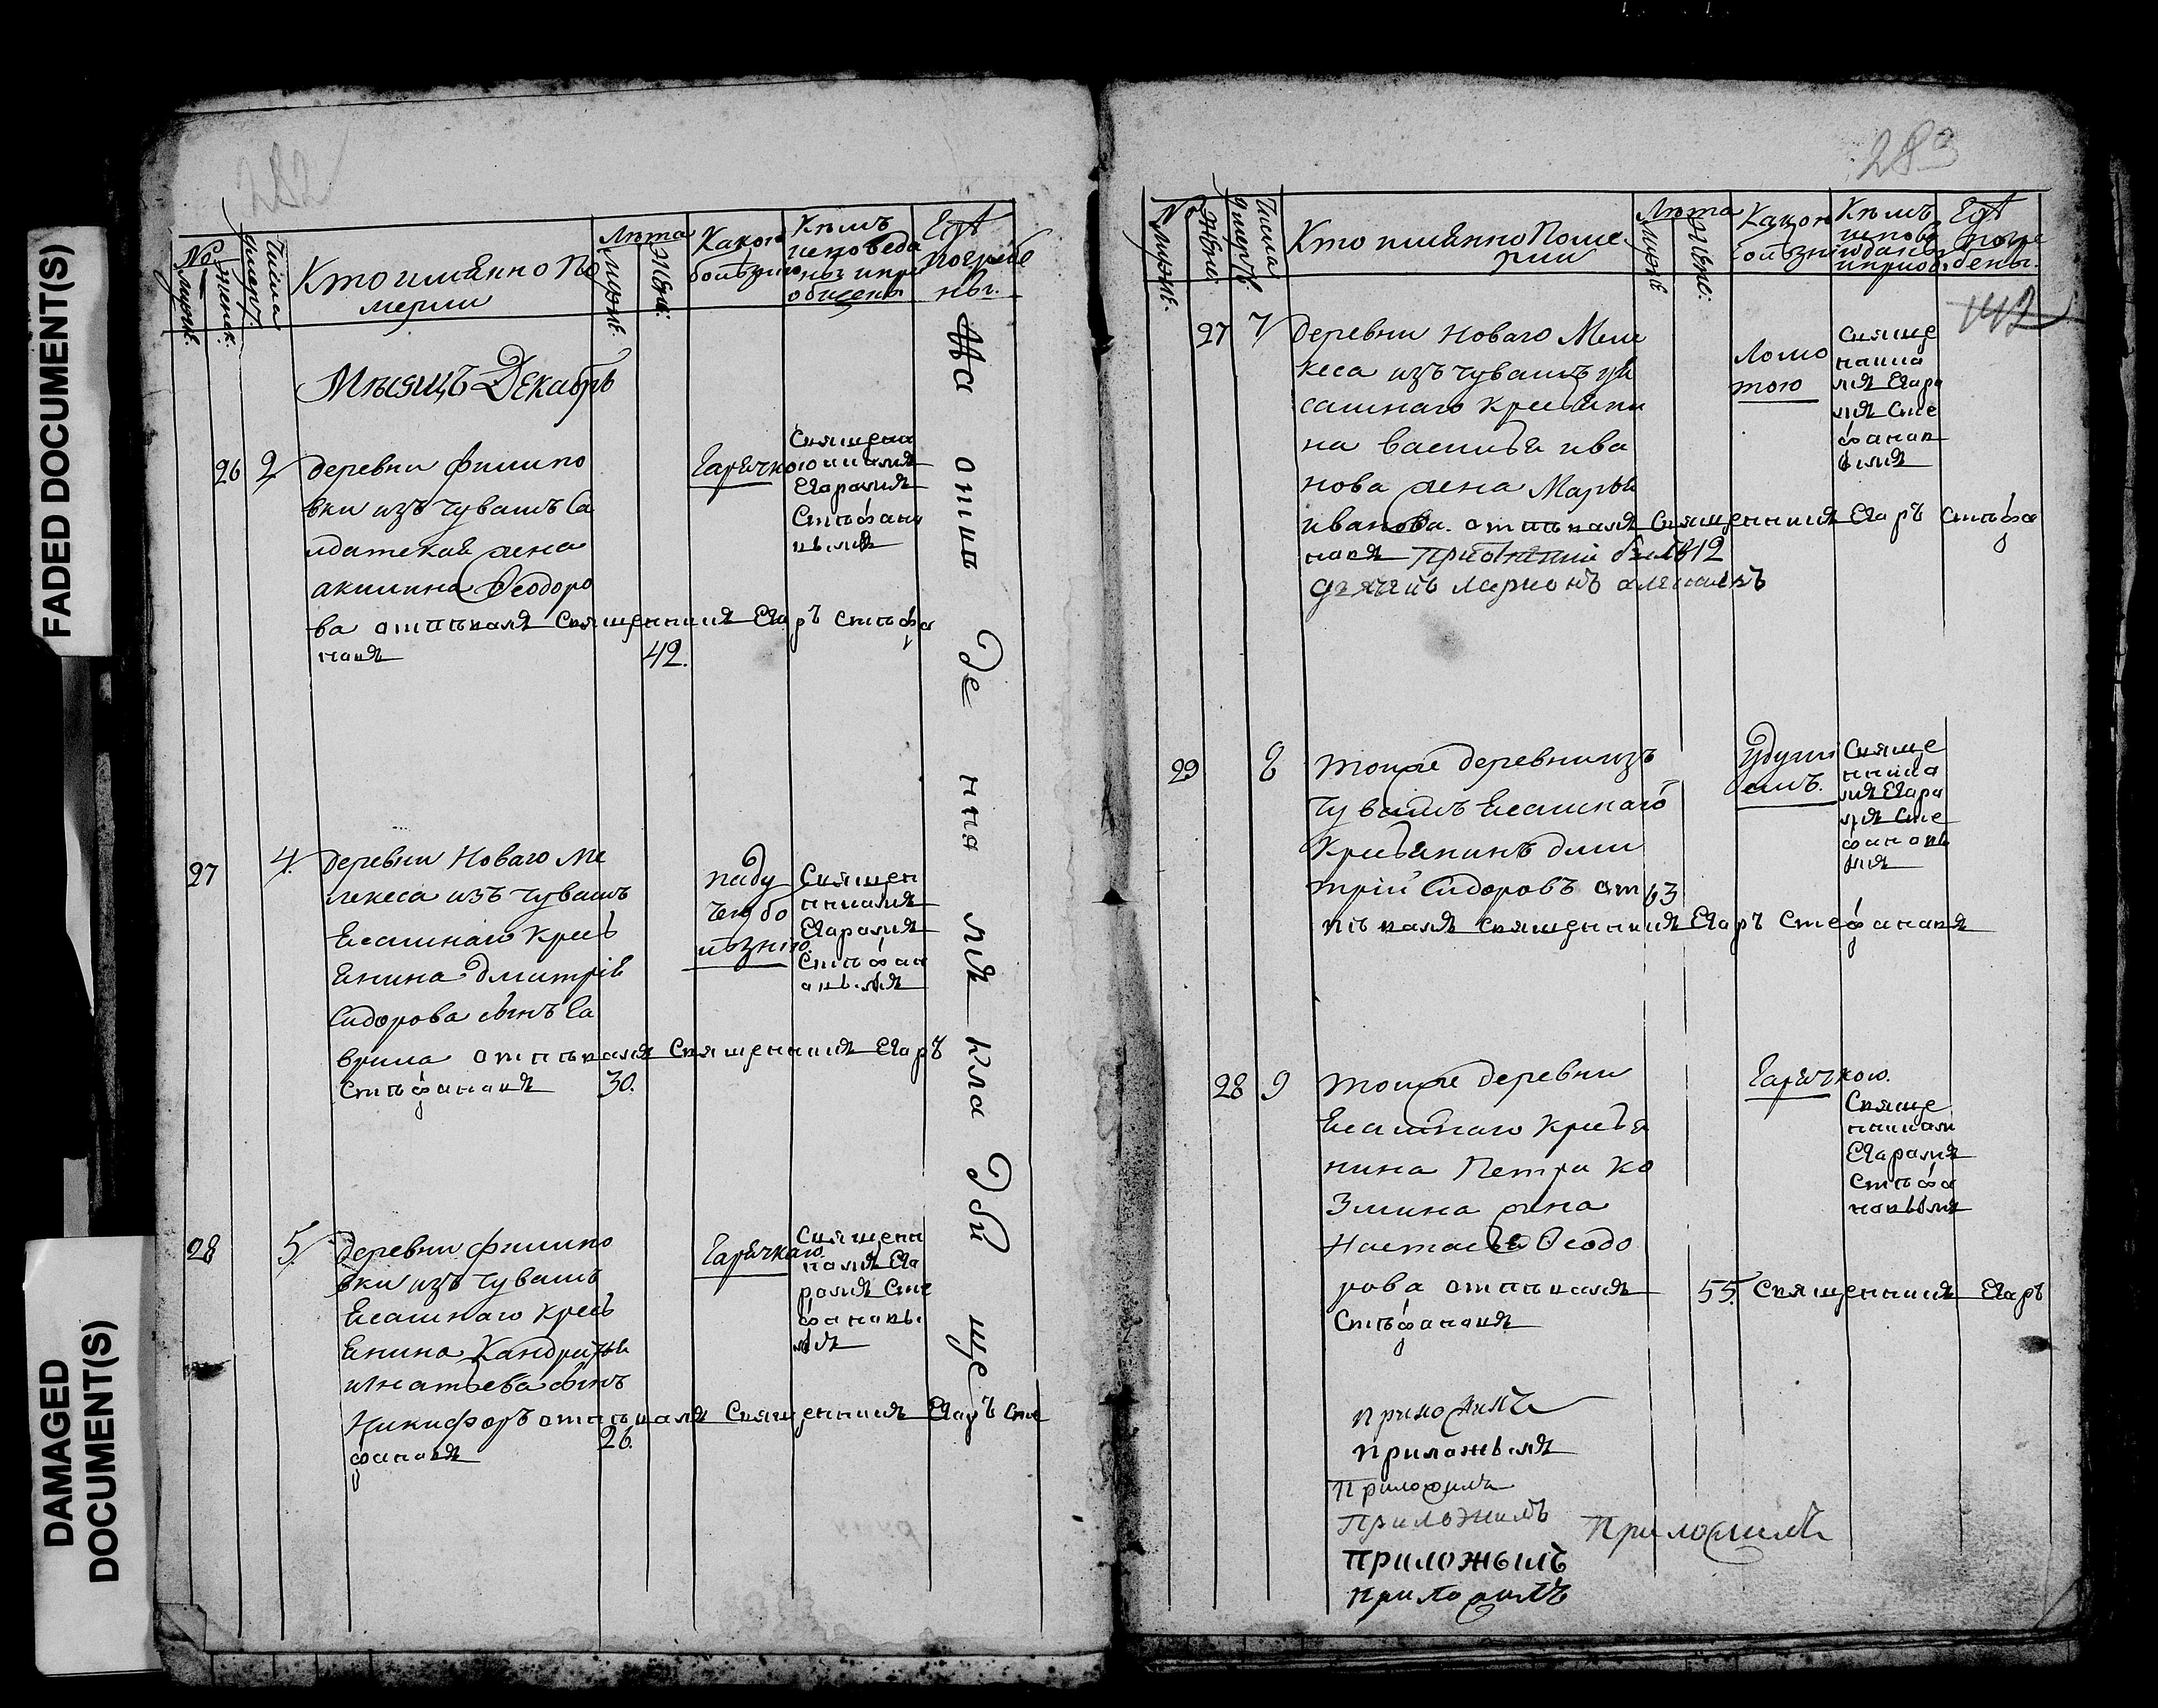 FADED DOCUMENT(S)
DAMAGED
DOCUMENT(S)
282
№
мужск.
женск.
Числа
умерт.
Кто имянно По
мерли
Лѣта
мужс.
женс.
Какою
болѣзнію
Кѣмъ
исповеда
ны и прі
общены
Гдѣ
погребе
ны.
Мѣсяцъ Декабрь
26 2 деревни Филипо
вки изъ чувашъ са
лдатская жена
акилина Феодоро
ва отпѣвалъ Священникъ Егоръ Стефа
новъ
42.
Горячкою
Священ
Егоромъ
27 4. деревни Новаго Ме
лекеса изъ чувашъ
Ясашнаго кресь
янина Дмитрія
Сидорова сынъ Га
врила отпѣвалъ Священникъ Егоръ
Стефановъ 30.
паду
чею бо
лѣзнію
Священ
никомъ
Егоромъ
Стефан
28 5. деревни Филипо
вки изъ чувашъ
Ясашнаго кресь
янина Кандратья
Игнатьева сынъ
Никифоръ отпѣвалъ Священникъ Егоръ Сте
фановъ
26.
Горячкою
Священ
комъ Его
ромъ Сте
фановы
мъ
На отцъ де нна мъ кла дби ще
283
№
мужс.
женс.
Числа
умертв.
Кто имянно Поме
рли
Лѣта
мужс
женс:
Какою
болѣзни
Кѣмъ
испове
даны
и приоб.
Гдѣ
погре
бены.
142
27 7 деревни Новаго Меле
кеса изъ чувашъ уя
сашнаго крисьяни
на василья ива
нова жена Марья
иванова. отпѣвалъ Священникъ Егоръ Стефа
новъ
42
Ломо
тою
Свяще
ннико
мъ Егоро
мъ Сте
фанов
ымъ
29 8 тойже деревни изъ
Чувашъ Ясашнаго
Крисьянинъ дми
трій Сидоровъ от 63
пѣвалъ Священникъ Егоръ Стефановъ
удуши
емъ.
Свяще
ннико
мъ Егоро
мъ Сте
фановы
мъ
28 9 тойже деревни
Ясашнаго крисья
нина Петра Ко
змина жена
Настасья Феодо
рова отпѣвалъ 55. Священникъ Егоръ
Стефановъ
Горячкою.
Свяще
нником
Егоромъ
Стефа
новымъ
приложилъ
приложылъ
Приложилъ
Приложилъ Приложилъ
приложылъ
приложилъ